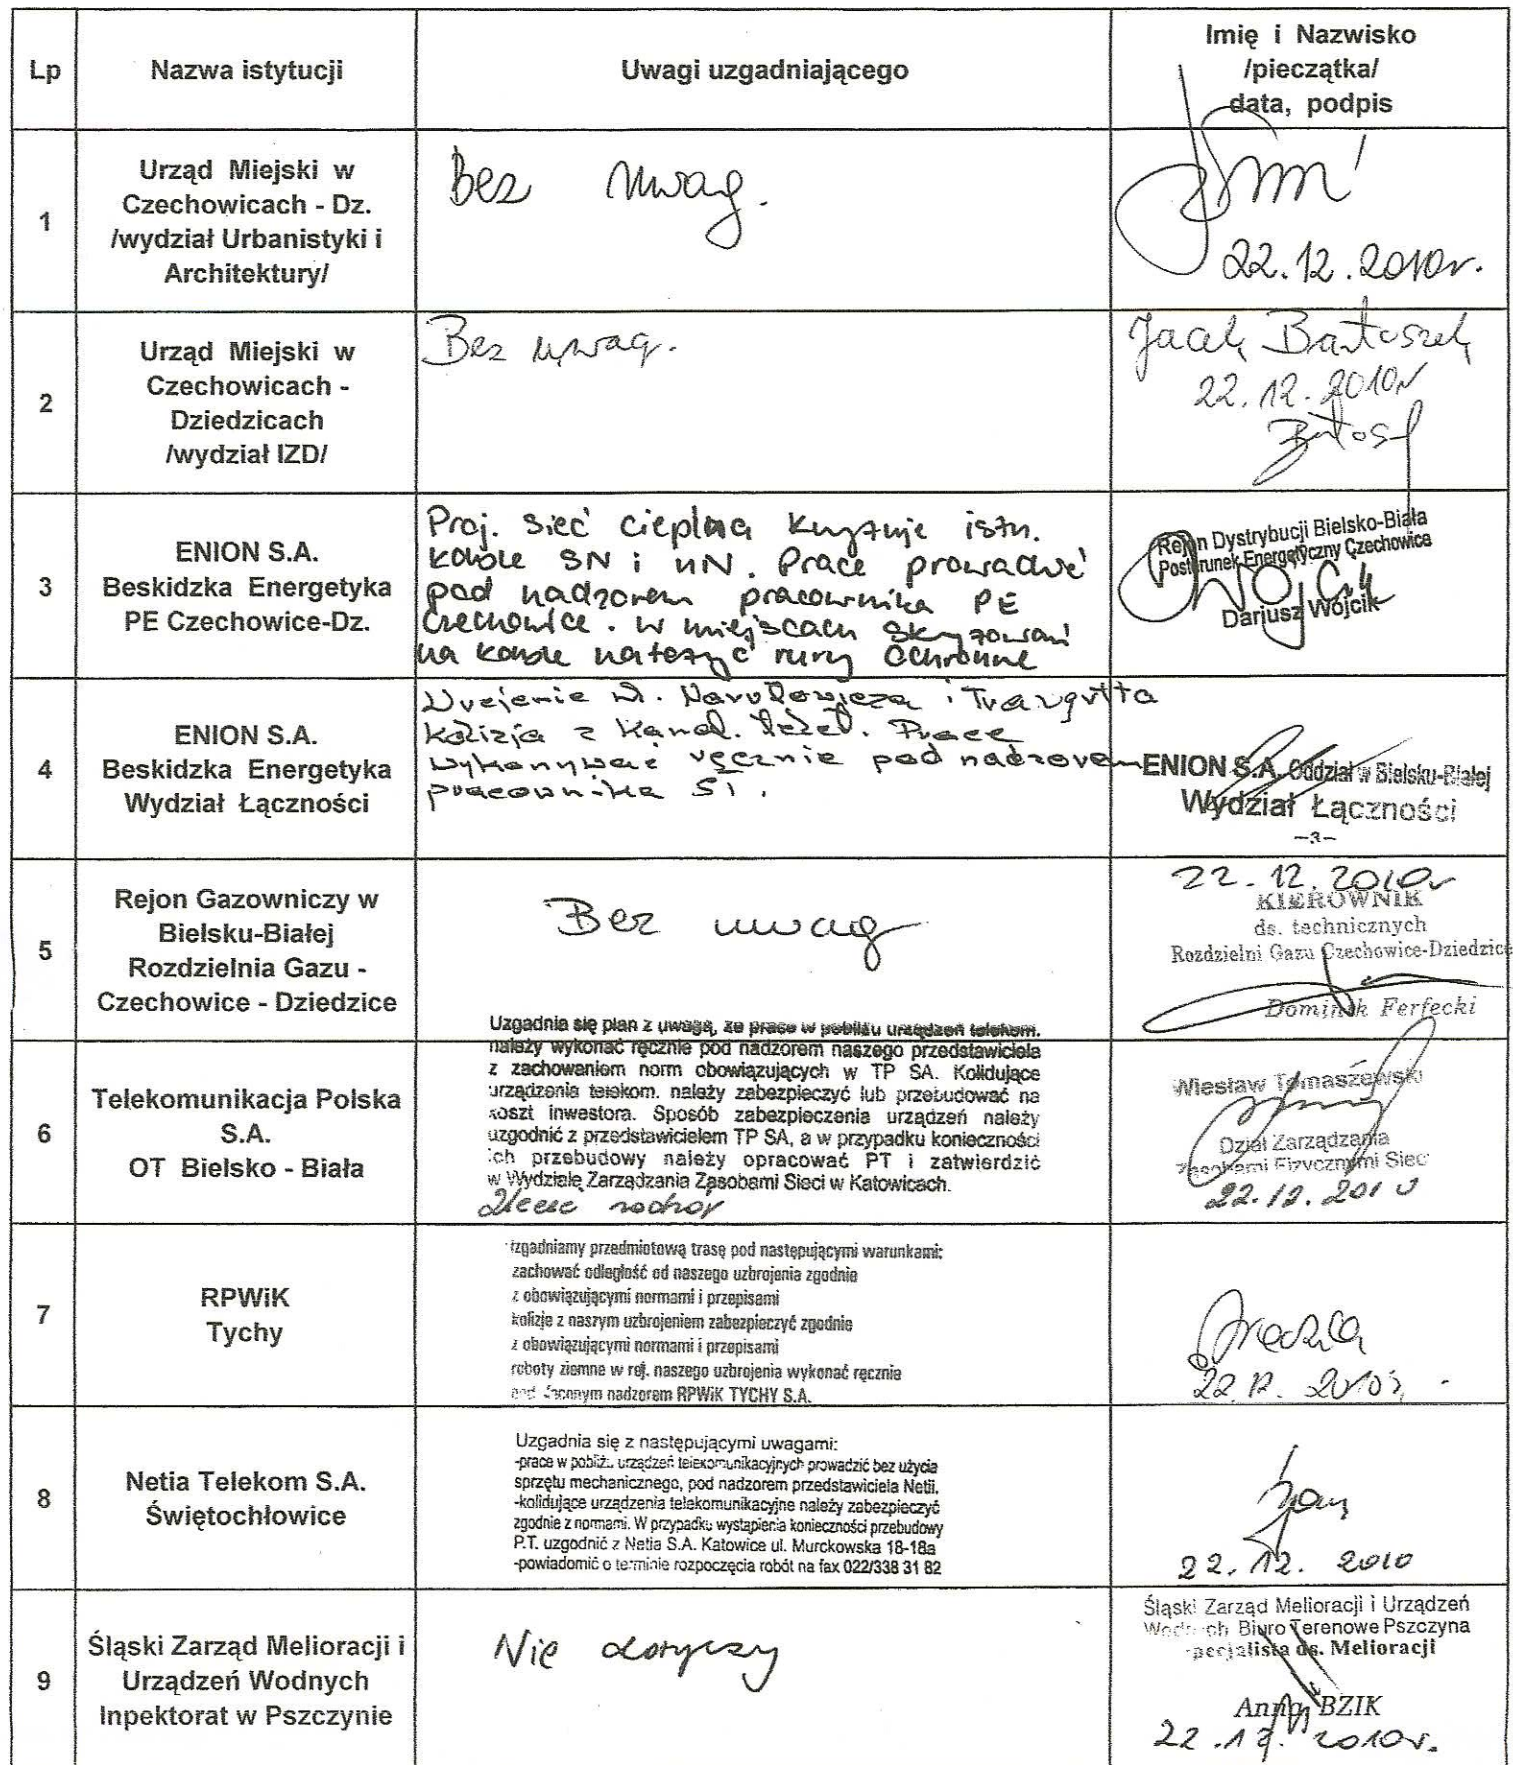 Lp
Nazwa istytucji
Uwagi uzgadniającego
Imię i Nazwisko
/pieczątka/
data, podpis
1
Urząd Miejski w
Czechowicach - Dz.
/wydział Urbanistyki i
Architektury/
Bez uwag.
22.12.2010r.
2
Urząd Miejski w
Czechowicach -
Dziedzicach
/wydział IZD/
Bez uwag.
Jacek Bartoszek
22.12.2010r
3
ENION S.A.
Beskidzka Energetyka
PE Czechowice-Dz.
Proj. sieć cieplna krzyżuje istn.
kable SN i nN. Prace prowadzić
pod nadzorem pracownika PE
Czechowice. w miejscach skrzyżowań
na kable nałożyć rury ochronne
Rejon Dystrybucji Bielsko-Biała
Posterunek Energetyczny Czechowice
Dariusz Wójcik
4
ENION S.A.
Beskidzka Energetyka
Wydział Łączności
W rejonie ul. Narutowicza i Traugutta
kolizja z kanal. telet. Prace
wykonywać ręcznie pod nadzorem
pracownika ST.
ENION S.A. Oddział w Bielsku-Białej
Wydział Łączności
-3-
5
Rejon Gazowniczy w
Bielsku-Białej
Rozdzielnia Gazu -
Czechowice - Dziedzice
Bez uwag
22.12.2010r
KIEROWNIK
ds. technicznych
Rozdzielni Gazu Czechowice-Dziedzice
Dominik Ferfecki
6
Telekomunikacja Polska
S.A.
OT Bielsko - Biała
Uzgadnia się plan z uwagą, że prace w pobliżu urządzeń telekom.
należy wykonać ręcznie pod nadzorem naszego przedstawiciela
z zachowaniem norm obowiązujących w TP SA. Kolidujące
urządzenia telekom. należy zabezpieczyć lub przebudować na
koszt inwestora. Sposób zabezpieczenia urządzeń należy
uzgodnić z przedstawicielem TP SA, a w przypadku konieczności
ich przebudowy należy opracować PT i zatwierdzić
w Wydziale Zarządzania Zasobami Sieci w Katowicach.
Wiesław Tomaszewski
Dział Zarządzania
Zasobami Fizycznymi Sieci
22.12.2010
7
RPWiK
Tychy
uzgadniamy przedmiotową trasę pod następującymi warunkami:
zachować odległość od naszego uzbrojenia zgodnie
z obowiązującymi normami i przepisami
kolizje z naszym uzbrojeniem zabezpieczyć zgodnie
z obowiązującymi normami i przepisami
roboty ziemne w rej. naszego uzbrojenia wykonać ręcznie
nadzorem RPWiK TYCHY S.A.
22.12.2010r.
8
Netia Telekom S.A.
Świętochłowice
Uzgadnia się z następującymi uwagami:
-prace w pobliżu urządzeń telekomunikacyjnych prowadzić bez użycia
sprzętu mechanicznego, pod nadzorem przedstawiciela Netii.
-kolidujące urządzenia telekomunikacyjne należy zabezpieczyć
zgodnie z normami. W przypadku wystąpienia konieczności przebudowy
P.T. uzgodnić z Netia S.A. Katowice ul. Murckowska 18-18a
-powiadomić o terminie rozpoczęcia robót na fax 022/338 31 82
22.12.2010
9
Śląski Zarząd Melioracji i
Urządzeń Wodnych
Inpektorat w Pszczynie
Nie dotyczy
Śląski Zarząd Melioracji i Urządzeń
Wodnych Biuro Terenowe Pszczyna
specjalista ds. Melioracji
Anna BZIK
22.12.2010r.